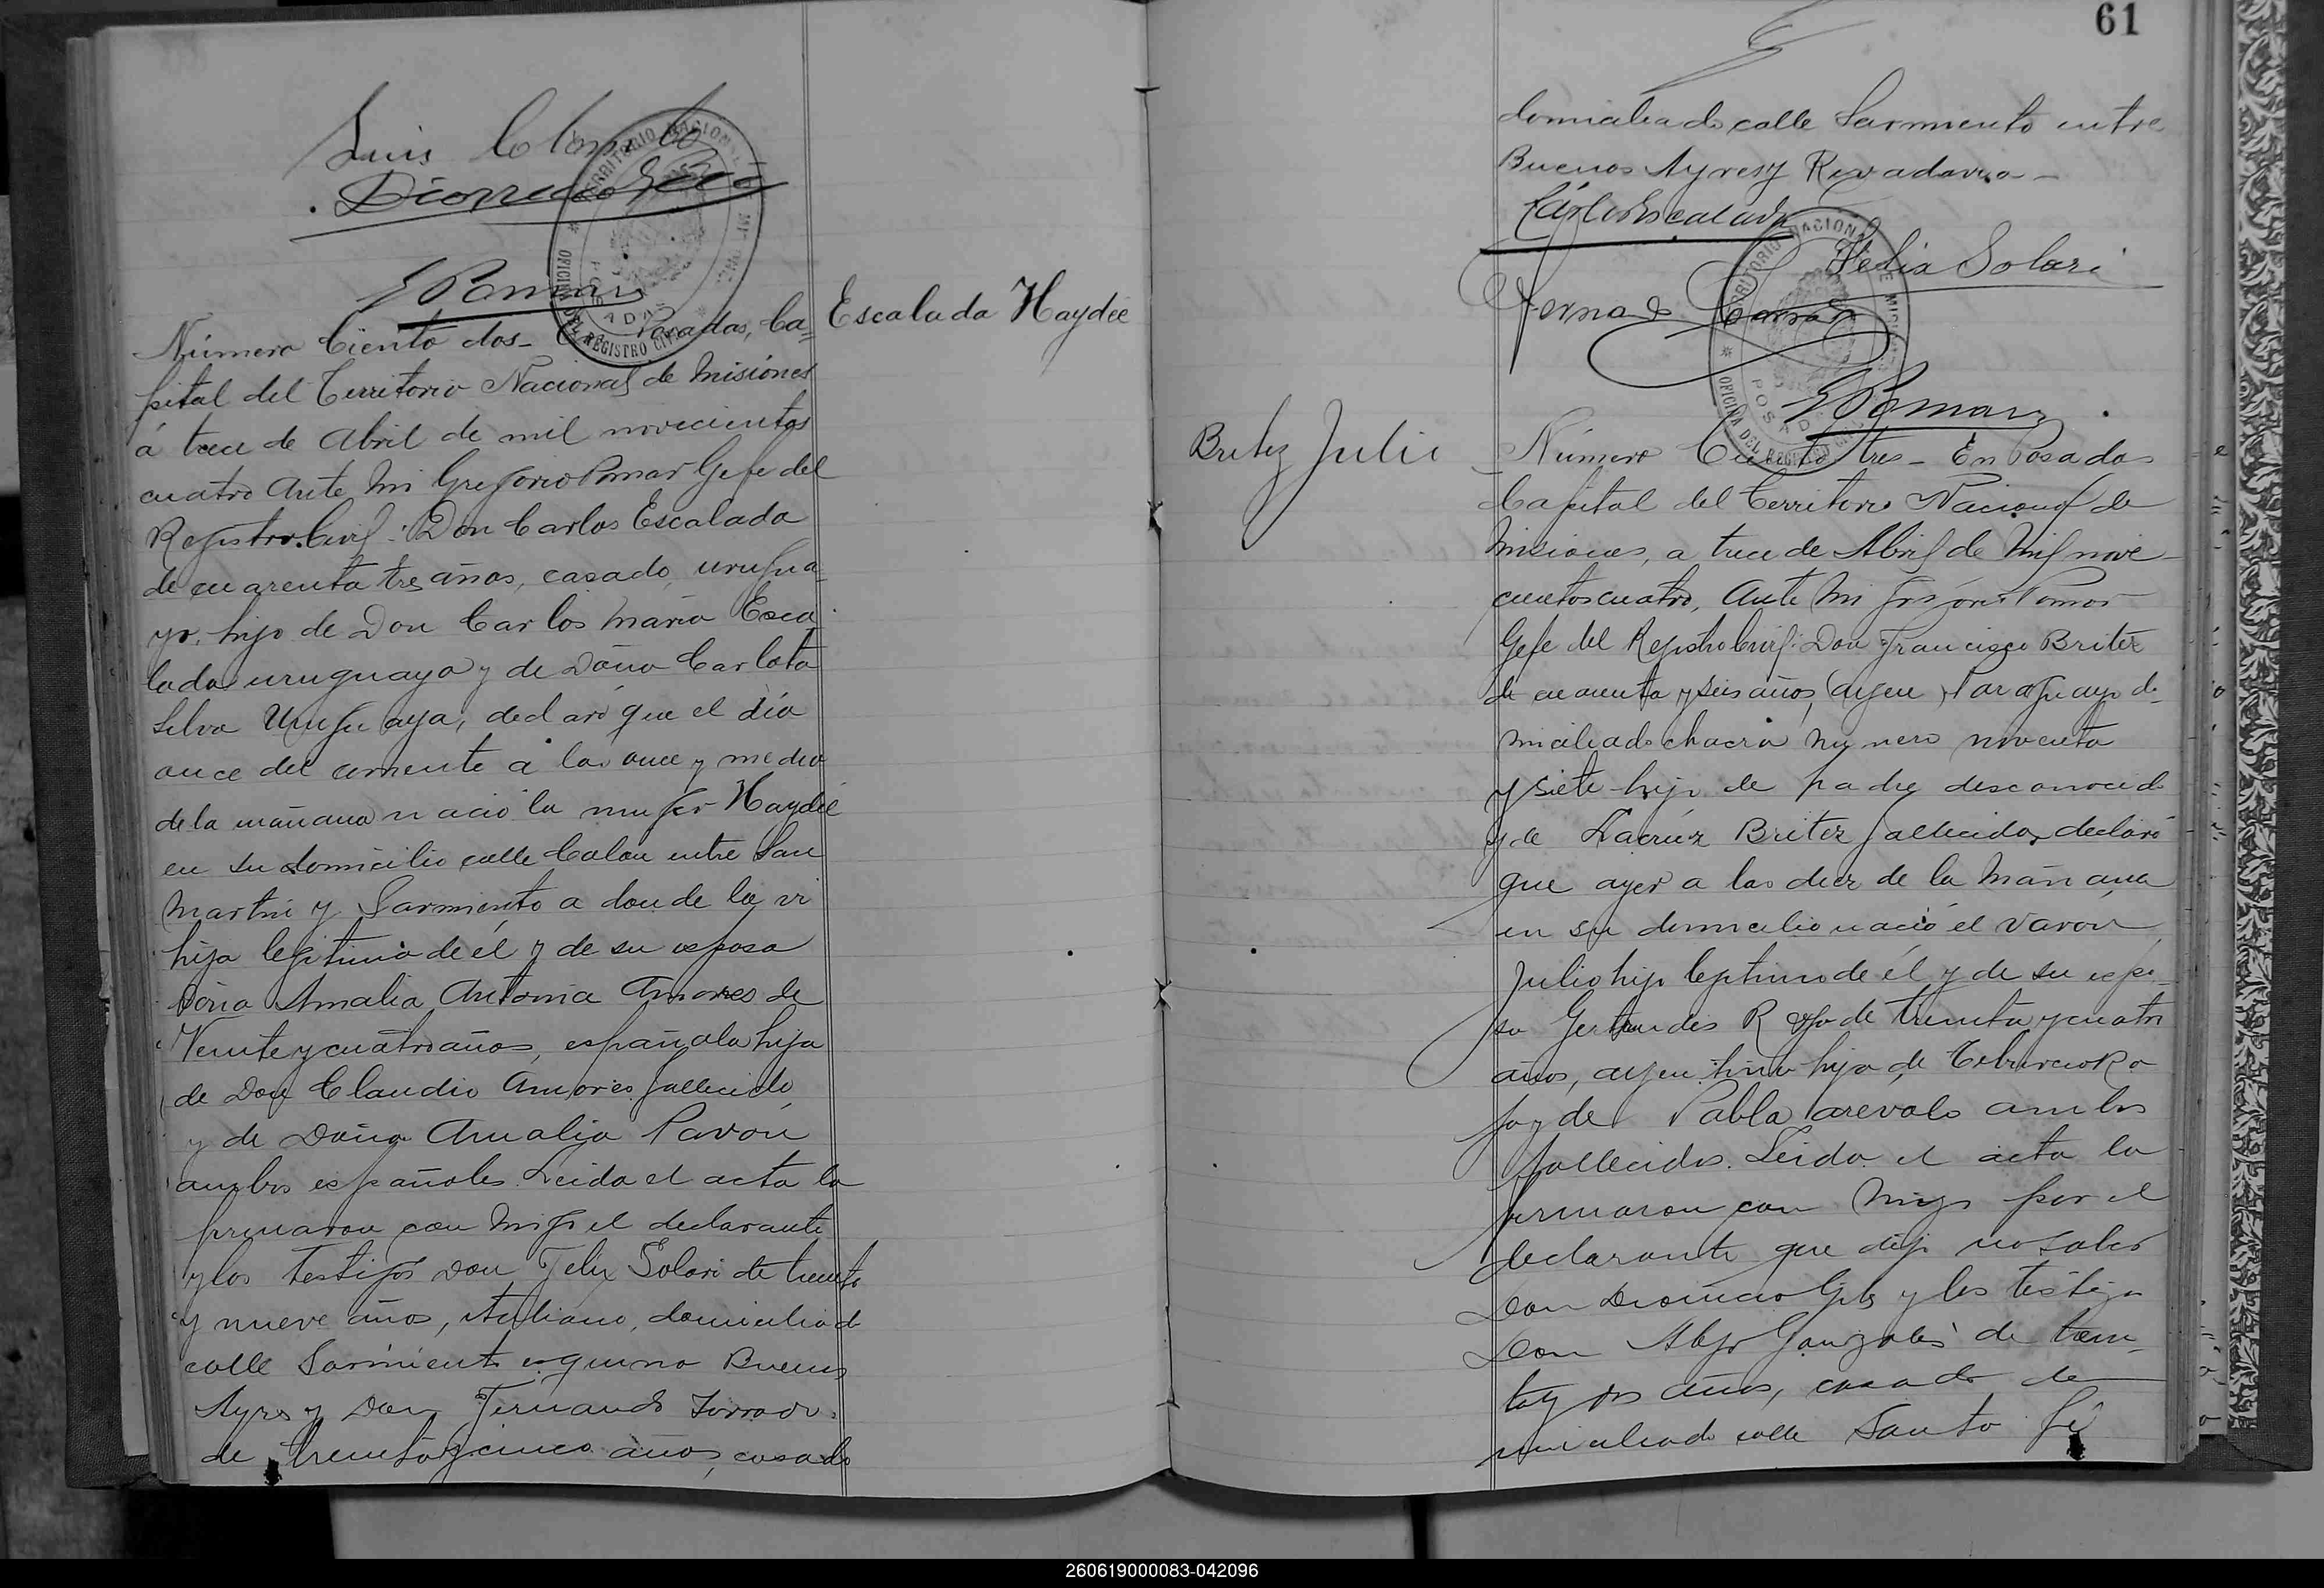 Luis
Dionisio
GPomar
TERRITORIO NACIONAL DE MISIONES
OFICINA DEL REGISTRO CIVIL
POSADAS
Escalada Haydée
Número Ciento dos- En Posadas, Ca-
pital del Territorio Nacional de Misiónes
á trece de Abril de mil novecientos
cuatro Ante Mi Gregorio Pomar Gefe del
Registro Civil: Don Carlos Escalada
de cuarenta tres años, casado, urugua-
yo, hijo de Don Carlos Maria Esca-
lada uruguayo y de Doña Carlota
Silva Uruguaya, declaró que el dia
once del corriente á las once y media
de la mañana nació la mujer Haydée
en su domicilio calle Colon entre San
Martin y Sarmiento a donde la vi
hija legitima de él y de su esposa
Doña Amalia Antonia Amores de
Veinte y cuatro años, española hija
de Don Claudio Amores fallecido
y de Doña Amalia Pavón
ambos españoles. Leida el acta la
firmaron con migo el declarante
y los testigos Don Felix Solari de treinta
y nueve años, italiano, domiciliado
calle Sarmiento esquina Buenos
Ayres y Don Fernando
de treinta y cinco años, casado
61
domiciliado calle Sarmiento entre
Buenos Ayres y Rivadavia-
Cárlos Escalada
Felix Solari
Fernando
TERRITORIO NACIONAL DE MISIONES
OFICINA DEL REGISTRO CIVIL
POSADAS
GPomar
Britez Julio
Número Ciento tres- En Posadas
Capital del Territorio Nacional de
Misiones, a trece de Abril de Mil nove-
cientos cuatro, Ante Mi Gregorio Pomar
Gefe del Registro Civil: Don Francisco Britez
de cuarenta y seis años, Paraguayo do-
miciliado chacra numero noventa
y siete hijo de padre desconocido
y de Lacrúz Britez fallecida, declaró
que ayer a las diez de la Mañana
en su domicilio nació el varón
Julio hijo legitimo de él y de su espo-
sa Gertrudis Rojo de treinta y cuatro
años, argentina hija de Tiburcio Ro
jo y de Pabla Arevalo ambos
fallecidos. Leida el acta la
firmaron con migo por el
declarante que dijo no saber
Don Dionisio y los testigos
Don Alejo Gonzales de trein-
ta y dos años, casado do-
miciliado calle Santa Fé
260619000083-042096